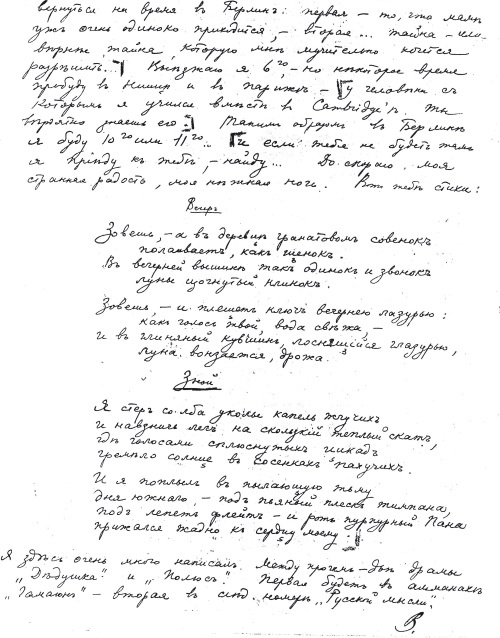 вернуться на время в Берлинъ: первая – то, что мамѣ
ужъ очень одиноко придется, – вторая... тайна –
тайна которую мнѣ мучительно хочется
разрѣшить... Выѣзжаю я 6го, – но нѣкоторое время
пробуду в Ниццѣ и въ Парижѣ – у человѣка съ
которымъ я учился вмѣстѣ въ Cambridge'ѣ. Ты
вѣроятно знаешь его. Такимъ образомъ въ Берлинѣ
я буду 10го или 11го... И если тебя не будетъ тамъ
я приду къ тебѣ, – найду... До скораго моя
странная радость, моя нѣжная ночь. Вотъ тебѣ стихи:
Вечеръ
Зовешь, – а въ деревцѣ гранатовомъ совенокъ
полаиваетъ, какъ щенокъ.
Въ вечерней вышинѣ такъ одинокъ и звонокъ
луны изогнутый клинокъ.
Зовешь, – и плещетъ ключъ вечернею лазурью:
какъ голосъ твой, вода свѣжа, –
и въ глиняный кувшинъ, лоснящійся глазурью,
луна вонзается, дрожа.
Зной
Я стеръ со лба укольы капель жгучихъ
и навзничь легъ на скользкій теплый скатъ,
гдѣ голосами сплюснутыхъ цикадъ
гремѣло солнце въ сосенкахъ пахучихъ.
И я поплылъ въ пылающую тьму
дня южнаго, – подъ пьяный плескъ тимпана,
подъ лепетъ флейтъ – и ротъ пурпурный Пана
прижался жадно къ сердцу моему.
Я здѣсь очень много написалъ. Между прочемъ – двѣ драмы
„Дѣдушка" и „Полюсъ". Первая будетъ въ альманахѣ
„Гамаюнъ" – вторая въ слѣд. номерѣ „Русской мысли".
В.